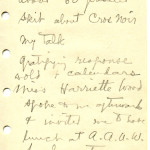 skit about Croe Noir
My Talk
gratifying response
sold 4 calendars
Miss Harriette Wood
spoke to me afterwards
& invited me to have
lunch at A.A.U.W.